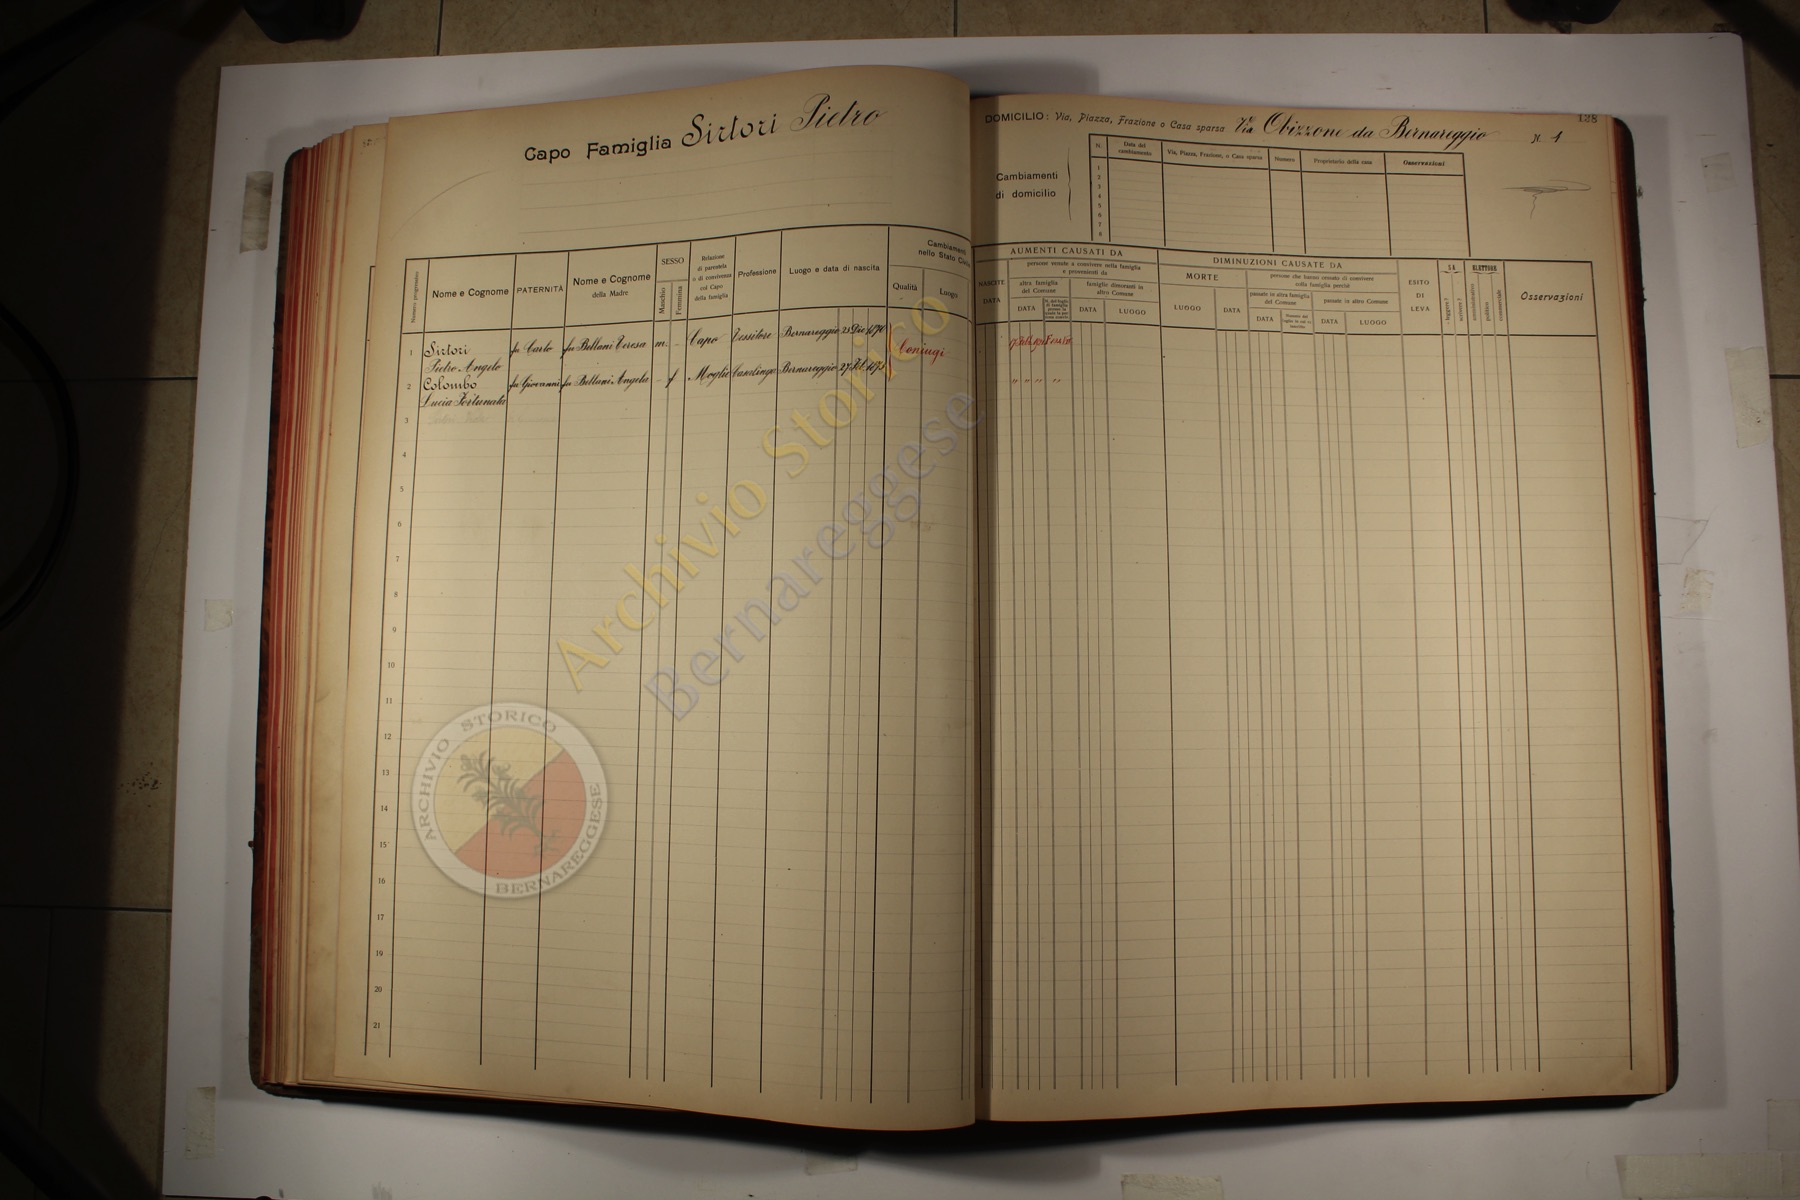 Capo Famiglia Sirtori Pietro
Numero progressivo
Nome e Cognome
PATERNITÀ
Nome e Cognome
della Madre
SESSO
Maschio
Femmina
Relazione
di parentela
o di convivenza
col Capo
della famiglia
Professione
Luogo e data di nascita
Cambiamenti
nello Stato Civile
Qualità
Luogo
1 Sirtori fu Carlo fu Bellani Teresa m. - Capo Tessitore Bernareggio 25 Dic 1870 Coniugi
Pietro Angelo
2 Colombo fu Giovanni fu Bellani Angela - f Moglie Casalinga Bernareggio 27 Feb 1873
Lucia Fortunata
3
4
5
6
7
8
9
10
11
12
13
14
15
16
17
18
19
20
21
128
DOMICILIO: Via, Piazza, Frazione o Casa sparsa Via Obizzone da Bernareggio N. 1
Cambiamenti
di domicilio
N.
Data del
cambiamento
Via, Piazza, Frazione, o Casa sparsa
Numero
Proprietario della casa
Osservazioni
1
2
3
4
5
6
7
8
AUMENTI CAUSATI DA
NASCITE
DATA
persone venute a convivere nella famiglia
e provenienti da
altra famiglia
del Comune
famiglie dimoranti in
altro Comune
DATA
DATA
LUOGO
DIMINUZIONI CAUSATE DA
MORTE
LUOGO
DATA
persone che hanno cessato di convivere
nella famiglia perchè
passate in altra famiglia
del Comune
passate in altro Comune
DATA
DATA
LUOGO
ESITO
DI
LEVA
SA
leggere?
scrivere?
ELETTORE
amministrativo
politico
commerciale
Osservazioni
" " " " "
Archivio Storico
Bernareggese
ARCHIVIO STORICO
BERNAREGGESE